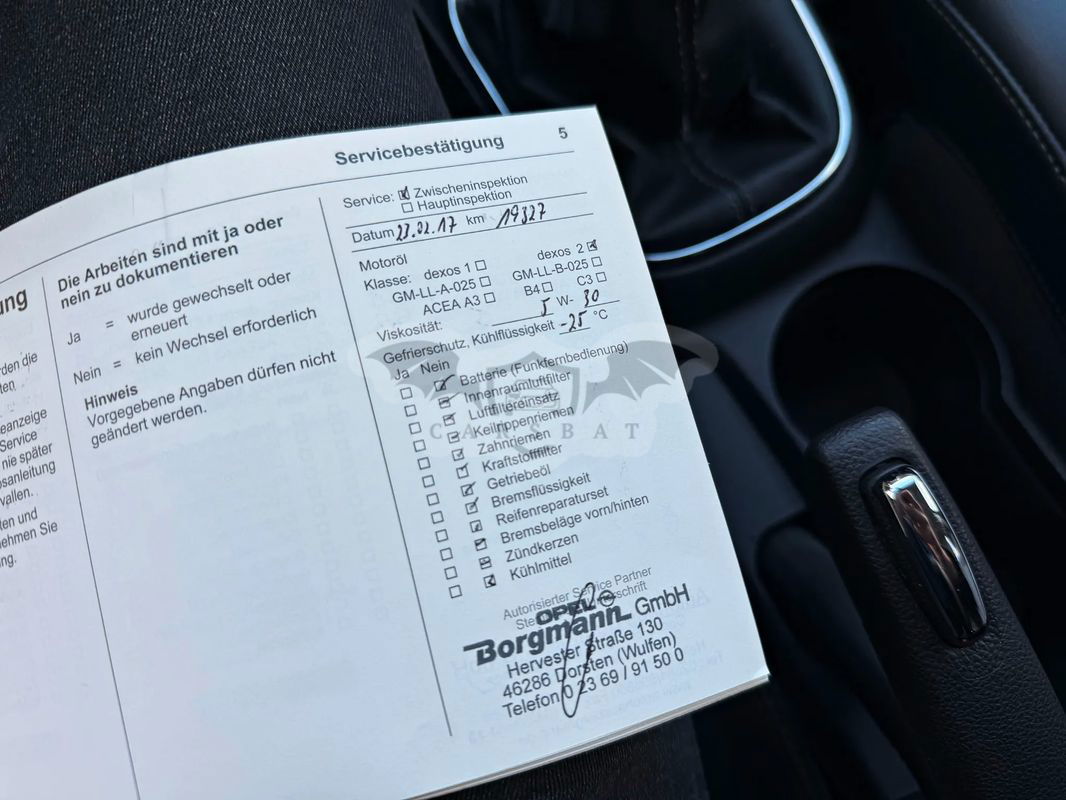 Servicebestätigung 5
ung
rden die
ten
eanzeige
Service
nie später
sanleitung
vallen.
ten und
nehmen Sie
ng.
Die Arbeiten sind mit ja oder
nein zu dokumentieren
Ja = wurde gewechselt oder
erneuert
Nein = kein Wechsel erforderlich
Hinweis
Vorgegebene Angaben dürfen nicht
geändert werden.
Service: Zwischeninspektion
Hauptinspektion
Datum 23.02.17 km 19327
Motoröl
Klasse: dexos 1 dexos 2
GM-LL-A-025 GM-LL-B-025
ACEA A3 B4 C3
Viskosität: 5 W- 30
Gefrierschutz, Kühlflüssigkeit -25 °C
Ja Nein
Batterie (Funkfernbedienung)
Innenraumluftfilter
Luftfiltereinsatz
Keilrippenriemen
Zahnriemen
Kraftstofffilter
Getriebeöl
Bremsflüssigkeit
Reifenreparaturset
Bremsbeläge vorn/hinten
Zündkerzen
Kühlmittel
CARSBAT
Autorisierter Service Partner
OPEL
Borgmann GmbH
Hervester Straße 130
46286 Dorsten (Wulfen)
Telefon 0 23 69 / 91 50 0